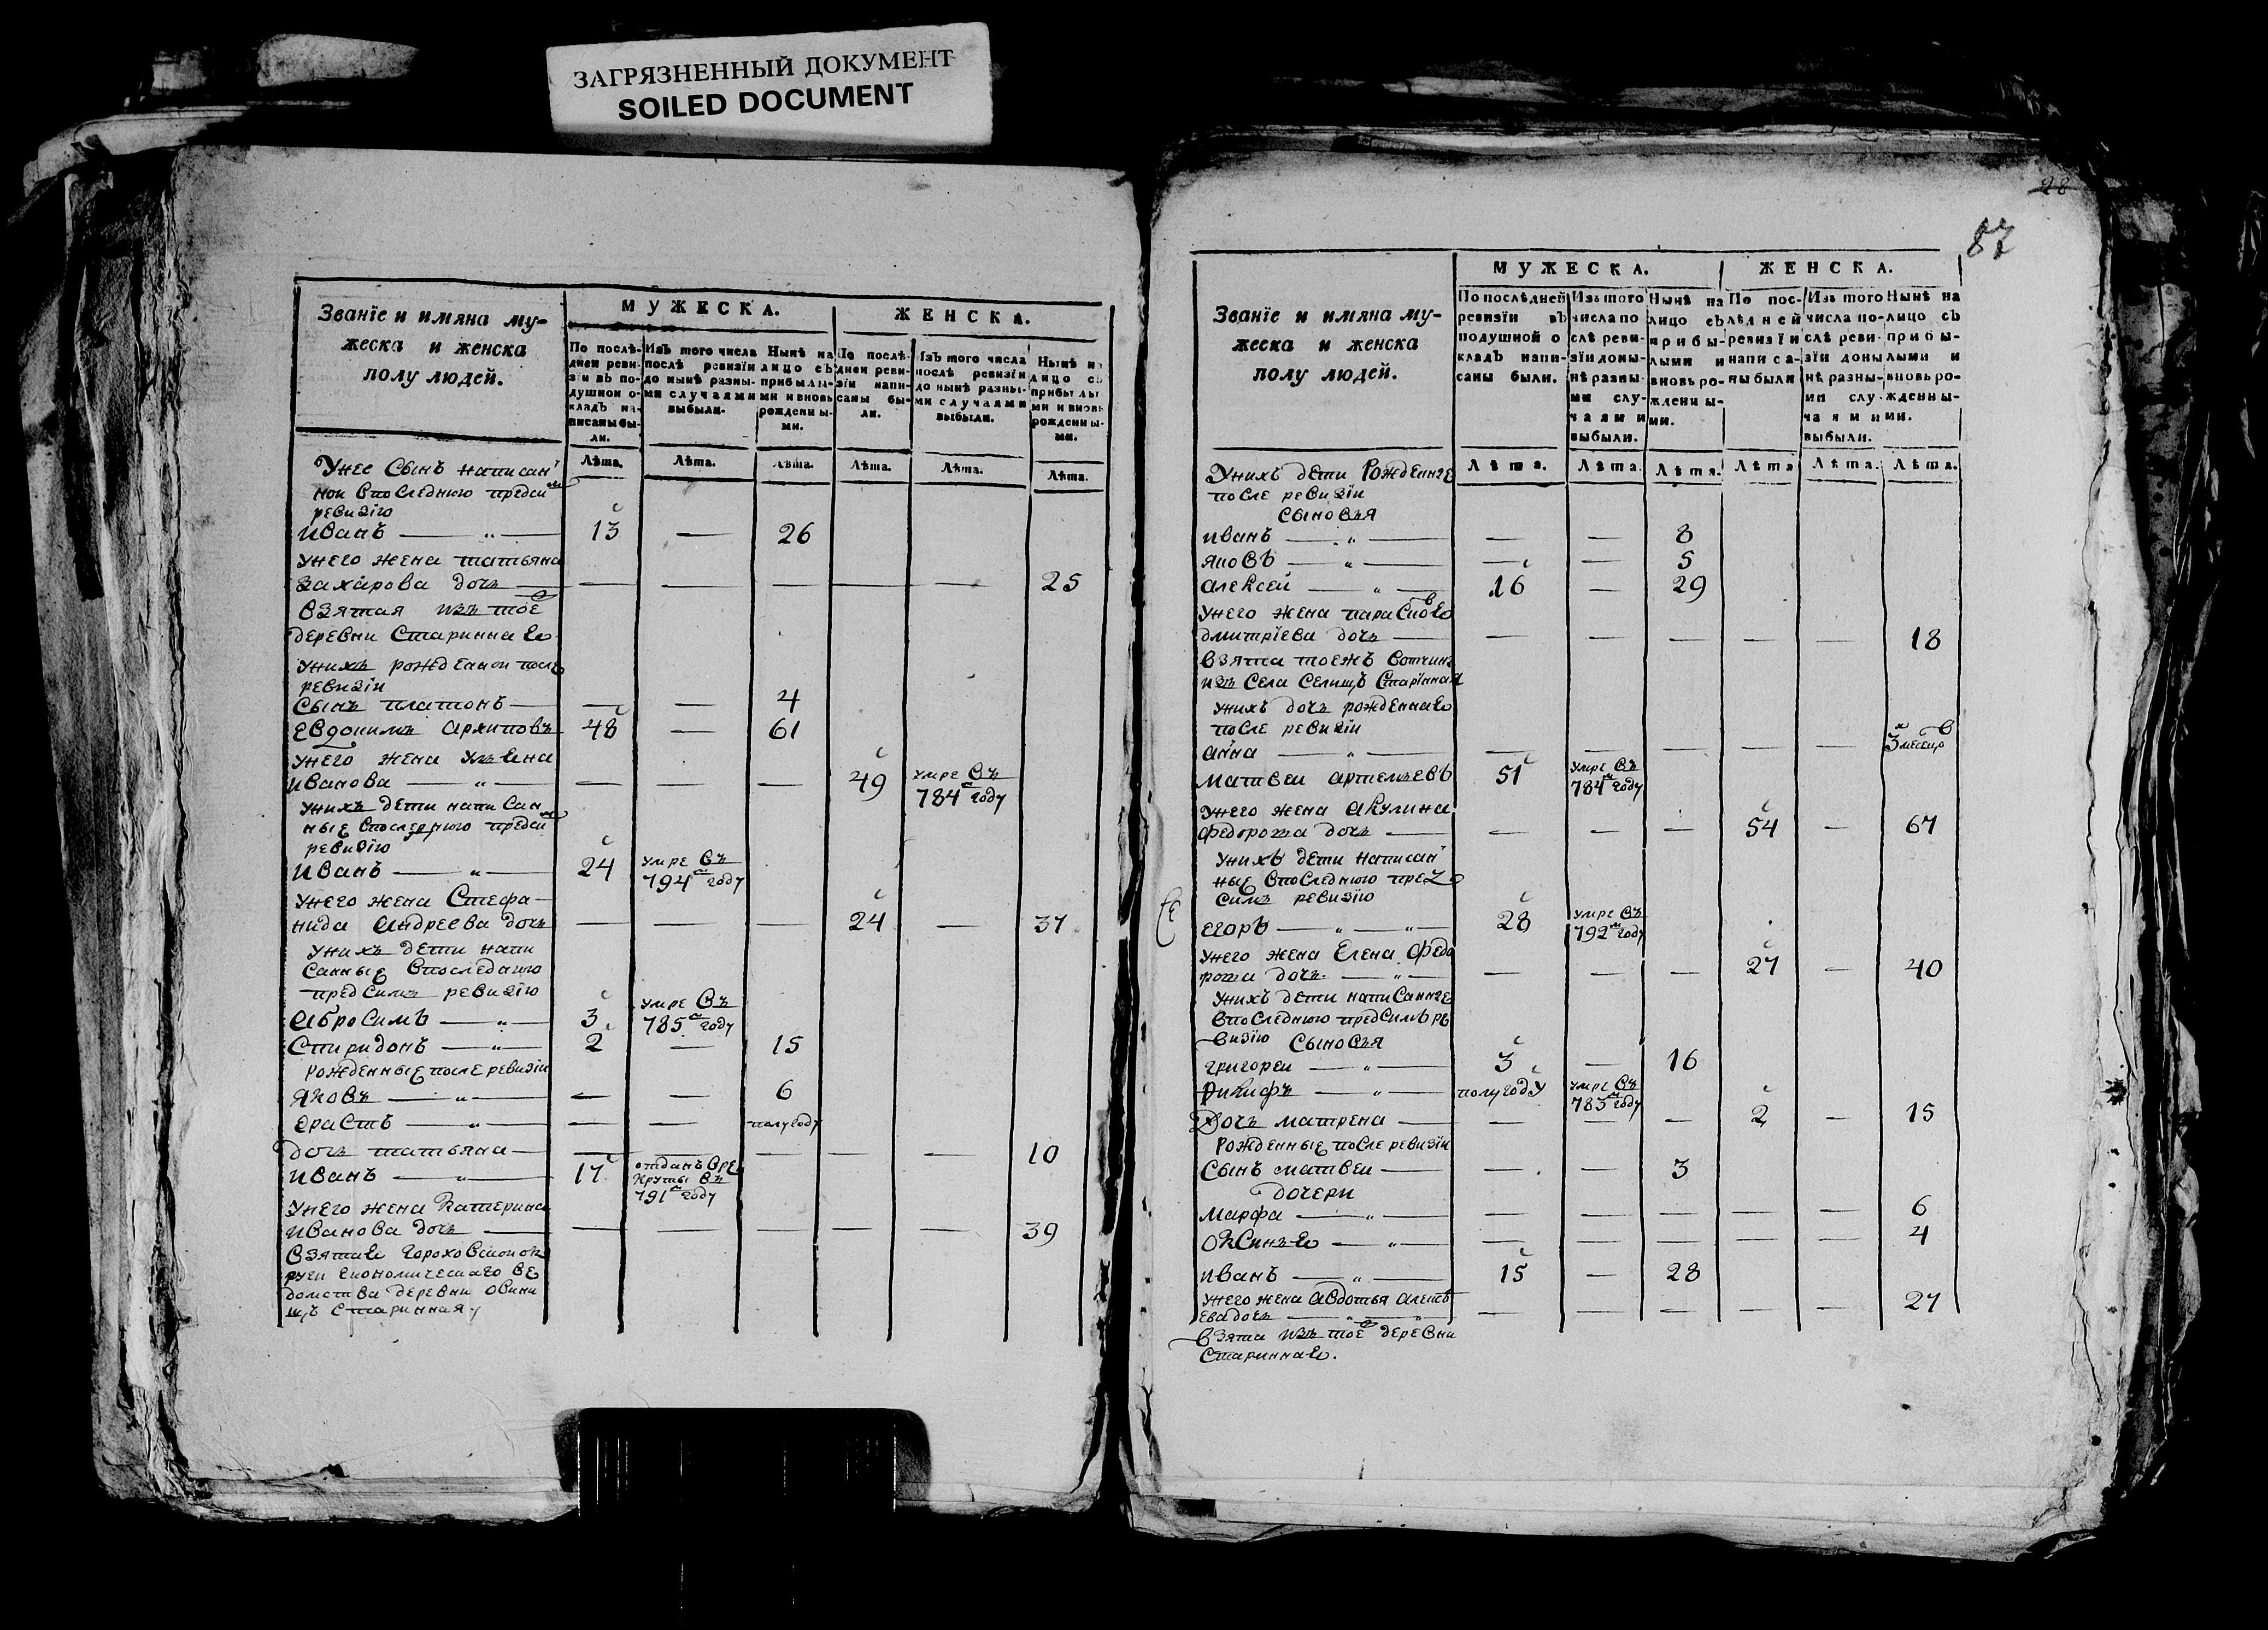 ЗАГРЯЗНЕННЫЙ ДОКУМЕНТ
SOILED DOCUMENT
Званїе и имяна му-
жеска и женска
полу людей.
МУЖЕСКА.
ЖЕНСКА.
По послѣ-
дней реви-
зїи въ по-
душной о-
кладъ на-
писаны бы-
ли.
Изъ того числа
послѣ ревизїи
до нынѣ разны-
ми случаями
выбыли.
Нынѣ на
лицо съ
прибылы-
ми и вновь
рожденны-
ми.
По послѣ-
дней реви-
зїи напи-
саны бы-
ли.
Изъ того числа
послѣ ревизїи
до нынѣ разны-
ми случаями
выбыли.
Нынѣ на
лицо съ
прибылы-
ми и вновь
рожденны-
ми.
Лѣта. Лѣта. Лѣта. Лѣта. Лѣта. Лѣта.
Унее Сынъ написан
нои впоследнюю предсим
ревизїю
иванъ — „ — 13 — 26
унего жена татьяна
захарова дочь — — — — — 25
взятая изъ тое
деревни Старинная
унихъ рожденнои после
ревизїи
Сынъ платонъ — — — 4
евдокимъ архиповъ 48 — 61
унего жена ульяна
иванова — „ — — — — 49 умре въ 784м году
унихъ дети написан
ные впоследнюю предсим
ревизїю
иванъ — „ — 24 умре въ 794м году
унего жена Стефа-
нида андреева дочь — — — 24 — 37
унихъ дети напи
санные впоследнюю
предсимъ ревизїю
абросимъ — „ — 3 умре въ 785м году
Спиридонъ — „ — 2 — 15
рожденные после ревизїи
яковъ — „ — — — 6
ерастъ — „ — — — полугоду
дочь татьяна — — — — — — 10
иванъ — „ — 17 отданъ вре
круты въ
791м году
унего жена катерина
иванова дочь — — — — — — 39
взятая гороховскои ок
руги економическаго ве
домства деревни овини
щъ старинная
28
87
Званїе и имяна му-
жеска и женска
полу людей.
МУЖЕСКА.
ЖЕНСКА.
По послѣдней
ревизїи въ
подушной о
кладъ напи-
саны были.
Изъ того
числа по
слѣ реви-
зїи доны-
нѣ разны-
ми слу-
чаями
выбыли.
Нынѣ на
лицо съ
прибы-
лыми и
вновь ро-
жденны-
ми.
По пос-
лѣдней
ревизїи
написа-
ны были
Изъ того
числа по-
слѣ реви-
зїи доны
нѣ разны-
ми слу-
чаями
выбыли.
Нынѣ на
лицо съ
прибы-
лыми и
вновь ро-
жденны-
ми.
Лѣта. Лѣта. Лѣта. Лѣта Лѣта. Лѣта.
Унихъ дети Рожденые
после ревизїи
сыновья
иванъ — „ — — — 8
яковъ — „ — — — 5
алексей — „ — 16 — 29
унего жена парасковя
дмитрїева дочь — — — — — — 18
взята тоежъ вотчины
изъ села Селищъ старїнная
унихъ дочь рожденная
после ревизїи
анна — „ — — — — — — 3 месяцов
матвеи артемьевъ 51 умре въ 784м году
унего жена акулина
федорова дочь — — — — 54 — 67
унихъ дети написан
ные впоследнюю пред
симъ ревизїю
егоръ — „ — „ — 28 умре въ 792м году
унего жена Елена федо
рова дочь — „ — — — — 27 — 40
унихъ дети написанные
впоследнюю предсимъ ре
визїю Сыновья
григореи — „ — 3 — 16
— „ — полугоду умре въ 783м году
Дочь матрена — — — — 2 — 15
рожденные после ревизїи
Сынъ матвеи — — — 3
дочери
марфа — „ — — — — — — 6
оксинья — „ — — — — — — 4
иванъ — „ — 15 — 28
унего жена авдотья алексе
ева дочь — „ — „ — — — — — 27
взята изъ тое деревни
старинная.